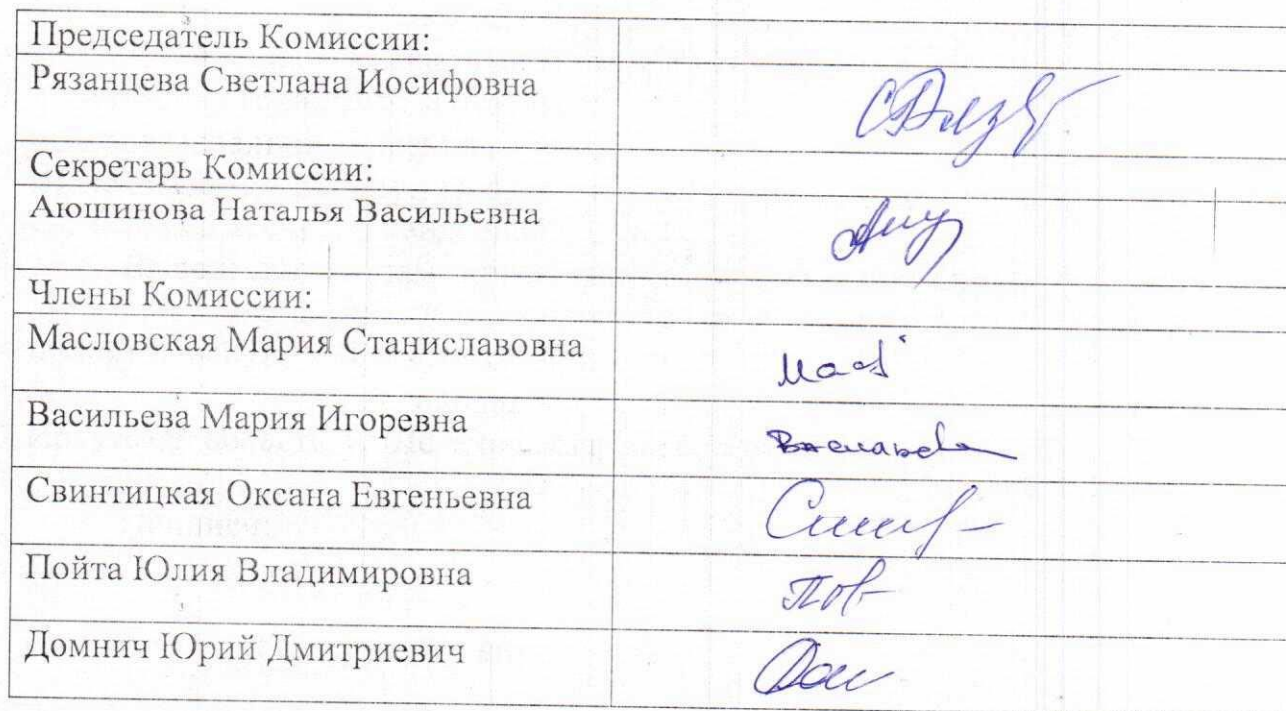 Председатель Комиссии:
Рязанцева Светлана Иосифовна
Секретарь Комиссии:
Аюшинова Наталья Васильевна
Члены Комиссии:
Масловская Мария Станиславовна
Васильева Мария Игоревна
Свинтицкая Оксана Евгеньевна
Пойта Юлия Владимировна
Домнич Юрий Дмитриевич